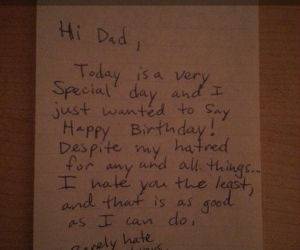 Hi Dad,
Today is a very
Special day and I
just wanted to Say
Happy Birthday!
Despite my hatred
for any and all things...
I hate you the least,
and that is as good
as I can do.
hate